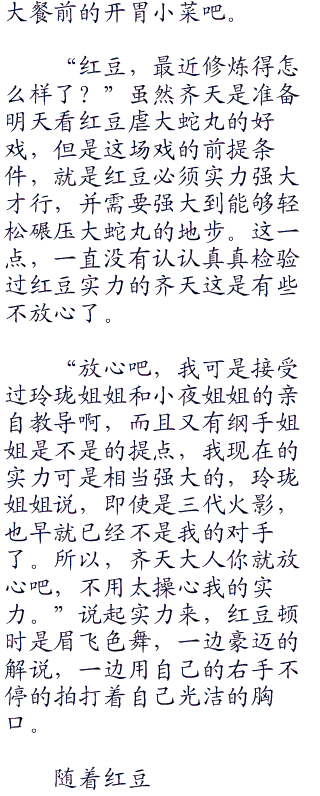 大餐前的开胃小菜吧。
“红豆，最近修炼得怎
么样了？”虽然齐天是准备
明天看红豆虐大蛇丸的好
戏，但是这场戏的前提条
件，就是红豆必须实力强大
才行，并需要强大到能够轻
松碾压大蛇丸的地步。这一
点，一直没有认认真真检验
过红豆实力的齐天这是有些
不放心了。
“放心吧，我可是接受
过玲珑姐姐和小夜姐姐的亲
自教导啊，而且又有纲手姐
姐是不是的提点，我现在的
实力可是相当强大的，玲珑
姐姐说，即使是三代火影，
也早就已经不是我的对手
了。所以，齐天大人你就放
心吧，不用太操心我的实
力。”说起实力来，红豆顿
时是眉飞色舞，一边豪迈的
解说，一边用自己的右手不
停的拍打着自己光洁的胸
口。
随着红豆